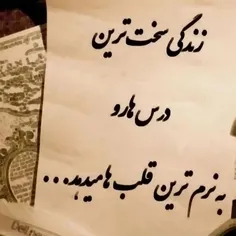 زندگی سخت ترین
درس هارو
به نرم ترین قلب ها میدهد...